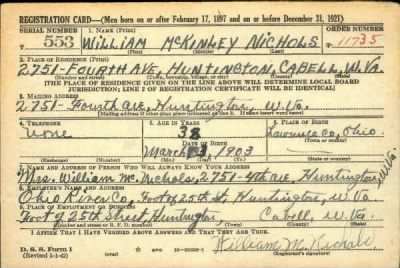 REGISTRATION CARD—(Men born on or after February 17, 1897 and on or before December 31, 1921)
SERIAL NUMBER 1. NAME (Print) ORDER NUMBER
553 WILLIAM McKINLEY NICHOLS 11735
(First) (Middle) (Last)
2. PLACE OF RESIDENCE (Print)
2751-FOURTH AVE, HUNTINGTON, CABELL, W.VA.
(Number and street) (Town, township, village, or city) (County) (State)
[THE PLACE OF RESIDENCE GIVEN ON THE LINE ABOVE WILL DETERMINE LOCAL BOARD
JURISDICTION; LINE 2 OF REGISTRATION CERTIFICATE WILL BE IDENTICAL]
3. MAILING ADDRESS
2751-Fourth Ave, Huntington, W.Va.
[Mailing address if other than place indicated on line 2. If same insert word same]
4. TELEPHONE 5. AGE IN YEARS 6. PLACE OF BIRTH
None 38 Lawrence Co,
DATE OF BIRTH (Town or county)
March 1903 Ohio
(Exchange) (Number) (Mo.) (Day) (Yr.) (State or country)
7. NAME AND ADDRESS OF PERSON WHO WILL ALWAYS KNOW YOUR ADDRESS
Mrs. William Mc. Nichols, 2751-4th Ave, Huntington, W.Va.
8. EMPLOYER'S NAME AND ADDRESS
Ohio River Co, Foot of 25th St Huntington, W. Va
9. PLACE OF EMPLOYMENT OR BUSINESS
Foot of 25th Street Huntington, Cabell, W. Va.
(Number and street or R. F. D. number) (Town) (County) (State)
I AFFIRM THAT I HAVE VERIFIED ABOVE ANSWERS AND THAT THEY ARE TRUE.
D. S. S. Form 1
(Revised 1-1-42) (over)
William M. Nichols
(Registrant's signature)